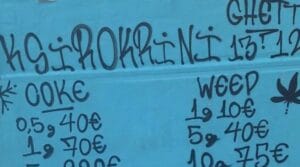 GHETT
KSIROKRINI 13.12
COKE
0,5g 40€
1g 70€
WEED
1g 10€
5g 40€
10g 75€